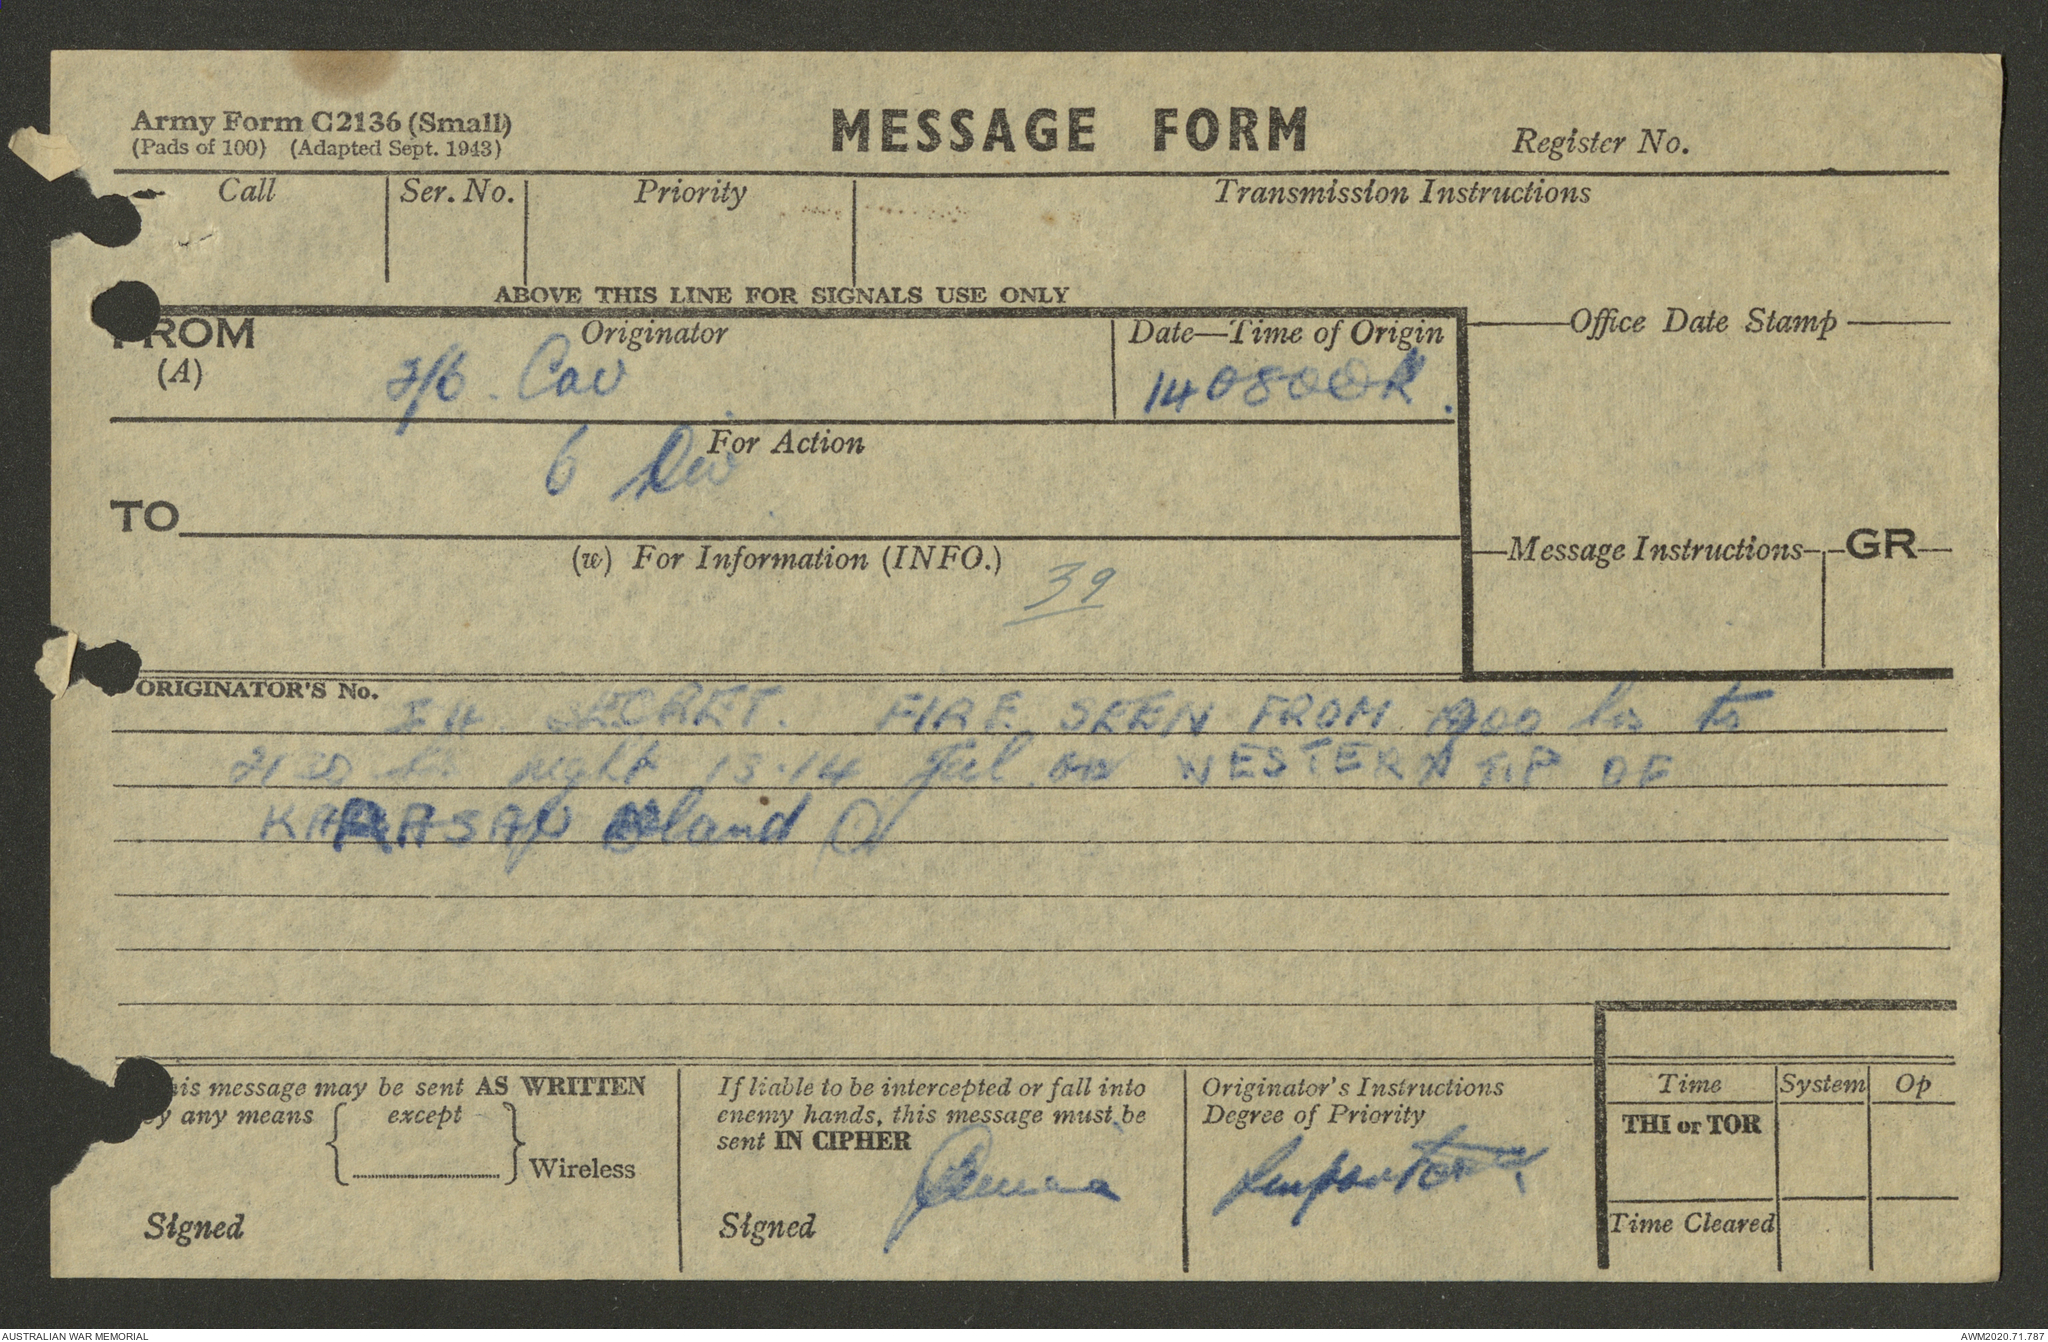 Army Form C2136 (Small)
(Pads of 100) (Adapted Sept. 1943)
MESSAGE FORM
Register No.
Call
Ser. No.
Priority
Transmission Instructions
ABOVE THIS LINE FOR SIGNALS USE ONLY
FROM
(A)
Originator
2/6. Cav
Date—Time of Origin
140800K.
Office Date Stamp
For Action
6 Div
TO
(w) For Information (INFO.)
39
Message Instructions
GR
ORIGINATOR'S No.
SECRET. FIRE SEEN FROM 1900 hrs to
2130 hrs night 13-14 Jul on WESTERN TIP OF
Island
This message may be sent AS WRITTEN
by any means
except
Wireless
Signed
If liable to be intercepted or fall into
enemy hands, this message must be
sent IN CIPHER
Signed
Originator's Instructions
Degree of Priority
Important
Time
System
Op
THI or TOR
Time Cleared
AUSTRALIAN WAR MEMORIAL
AWM2020.71.787